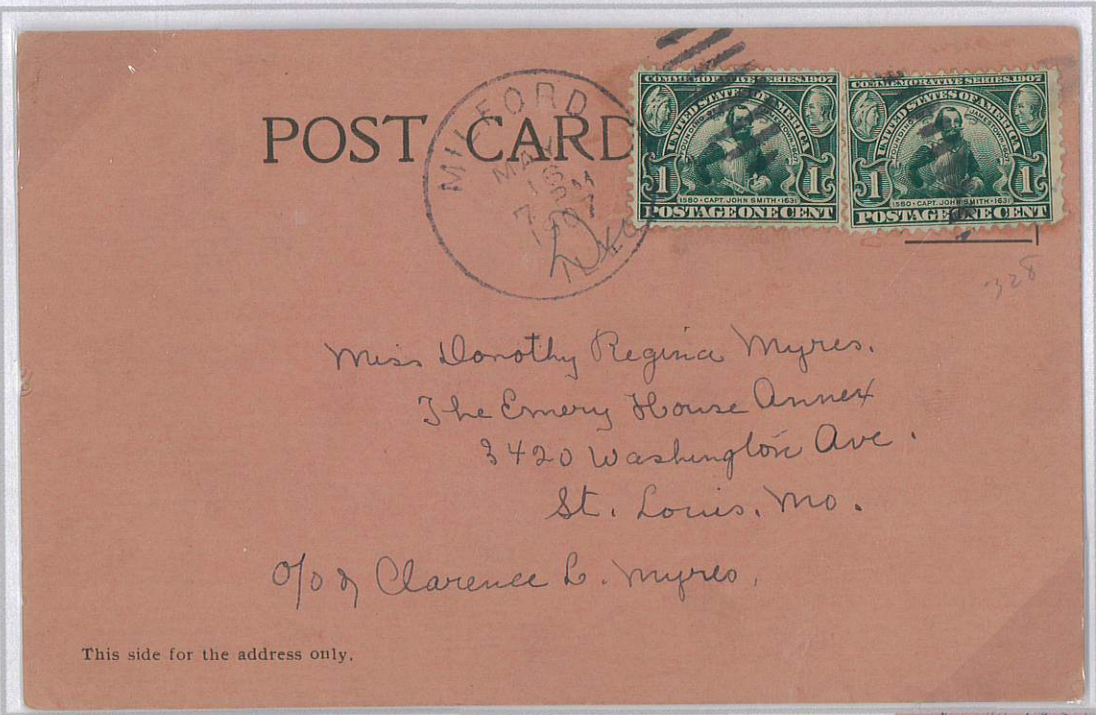 POST CARD
MILFORD
MAY
16
7 PM
1907
N.Y.
COMMEMORATIVE SERIES 1907
UNITED STATES OF AMERICA
FOUNDING OF JAMESTOWN 1607
1 1
1580 • CAPT. JOHN SMITH • 1631
POSTAGE ONE CENT
COMMEMORATIVE SERIES 1907
UNITED STATES OF AMERICA
FOUNDING OF JAMESTOWN 1607
1 1
1580 • CAPT. JOHN SMITH • 1631
POSTAGE ONE CENT
328
Miss Dorothy Regina Myres.
The Emery House Annex
3420 Washington Ave.
St. Louis. Mo.
c/o of Clarence L. Myres.
This side for the address only.